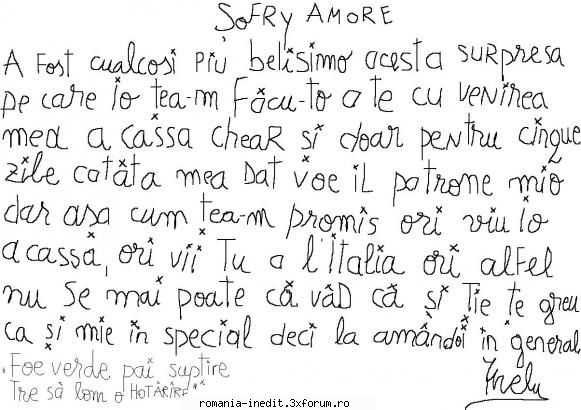 SOFRY AMORE
A FOST cualcosi piu belisimo acesta SURPRESA
De care io tea-m FĂcu-to a te cu venirea
mea a cassa cheaR si doar peNtru cinque
zile catăta mea Dat voe iL patrone mio
dar asa cum tea-m promis ori viu io
acassa, ori vii Tu a l'italia ori alFel
nu se mai poate că văD că si Tie te greu
ca si mie in special deci la amândoi in general
Foe verde pai suptire
Tre să lom o HOTĂRÎRE
Jnelu
romania-inedit.3xforum.ro